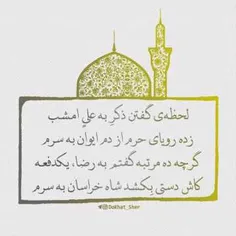 لحظه‌ی گفتن ذکرِ به علیٍ امشب
زده رویای حرم از دم ایوان به سرم
گرچه ده مرتبه گفتم به رضا، یکدفعه
کاش دستی بکشد شاه خراسان به سرم
@Dokhart_Sher